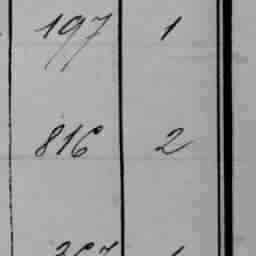 197 1
816 2
367 1